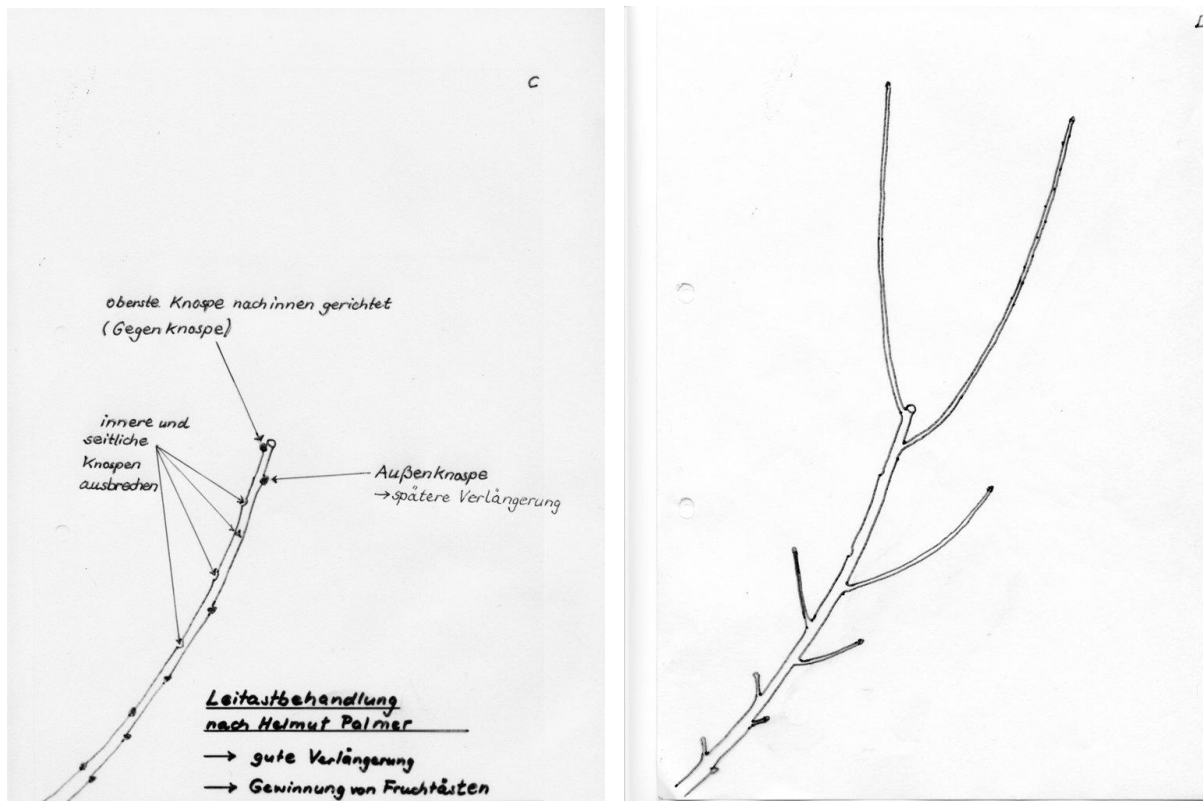 C
oberste Knospe nach innen gerichtet
(Gegenknospe)
innere und
seitliche
Knospen
ausbrechen
Außenknospe
→ spätere Verlängerung
Leitastbehandlung
nach Helmut Palmer
→ gute Verlängerung
→ Gewinnung von Fruchtästen